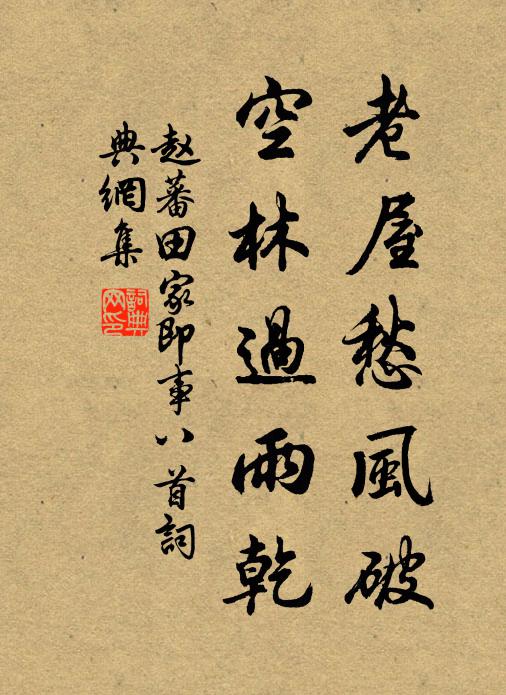 老屋愁風破
空林過雨乾
趙蕃田家即事八首詞
典網集
詞典網印